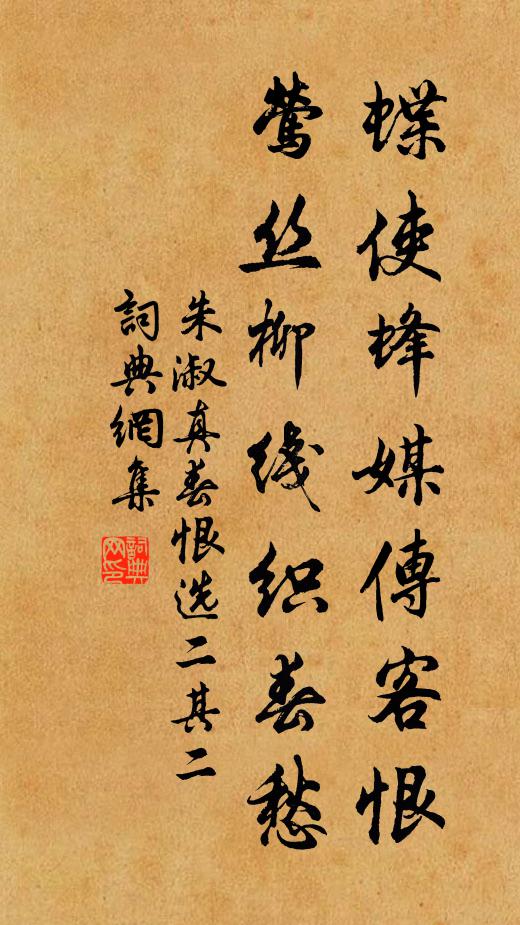 蝶使蜂媒傳客恨
鶯丝柳綫织春愁
朱淑真春恨选二其二
詞典網集
詞典网印